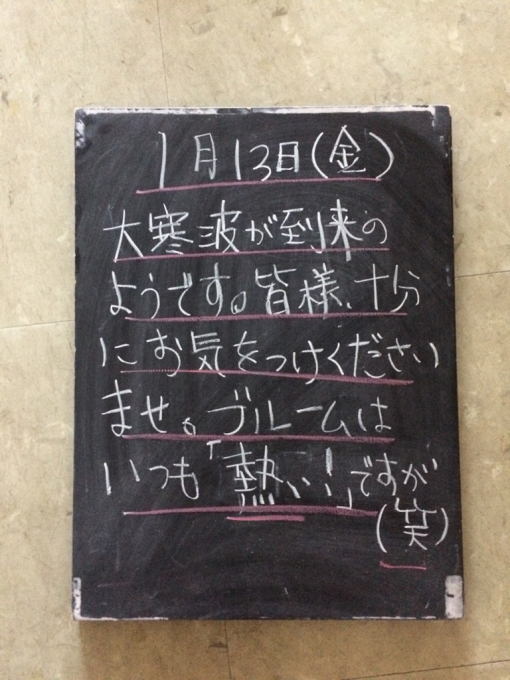 1月13日(金)
大寒波が到来の
ようです。皆様、十分
にお気をつけください
ませ。ブルームは
いつも「熱い!」ですが
(笑)